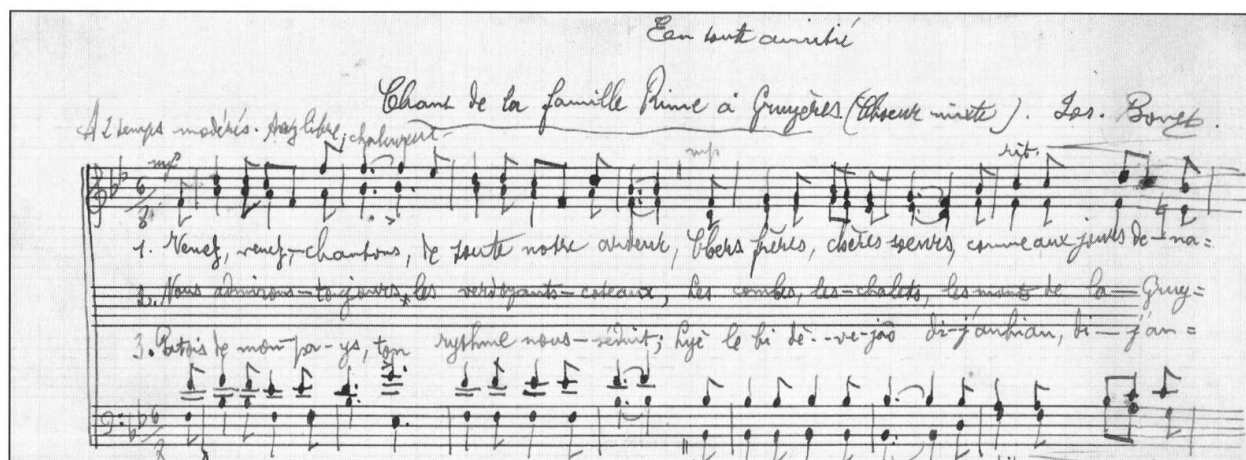 En toute amitié
Chant de la famille Rime à Gruyères (Choeur mixte). Jos. Bovet.
A 2 temps modérés. Assez libre, chaleureux
mp mp rit.
6/8
1. Venez, venez, chantons, de toute notre ardeur, Chers frères, chères soeurs, comme aux jours de na=
2. Nous admirons toujours les verdoyants coteaux, Les combes, les chalets, les monts de la Gruy=
3. Patois de mon pa-ys, ton rythme nous séduit; le bi dè di j'anhian, di j'an=
6/8